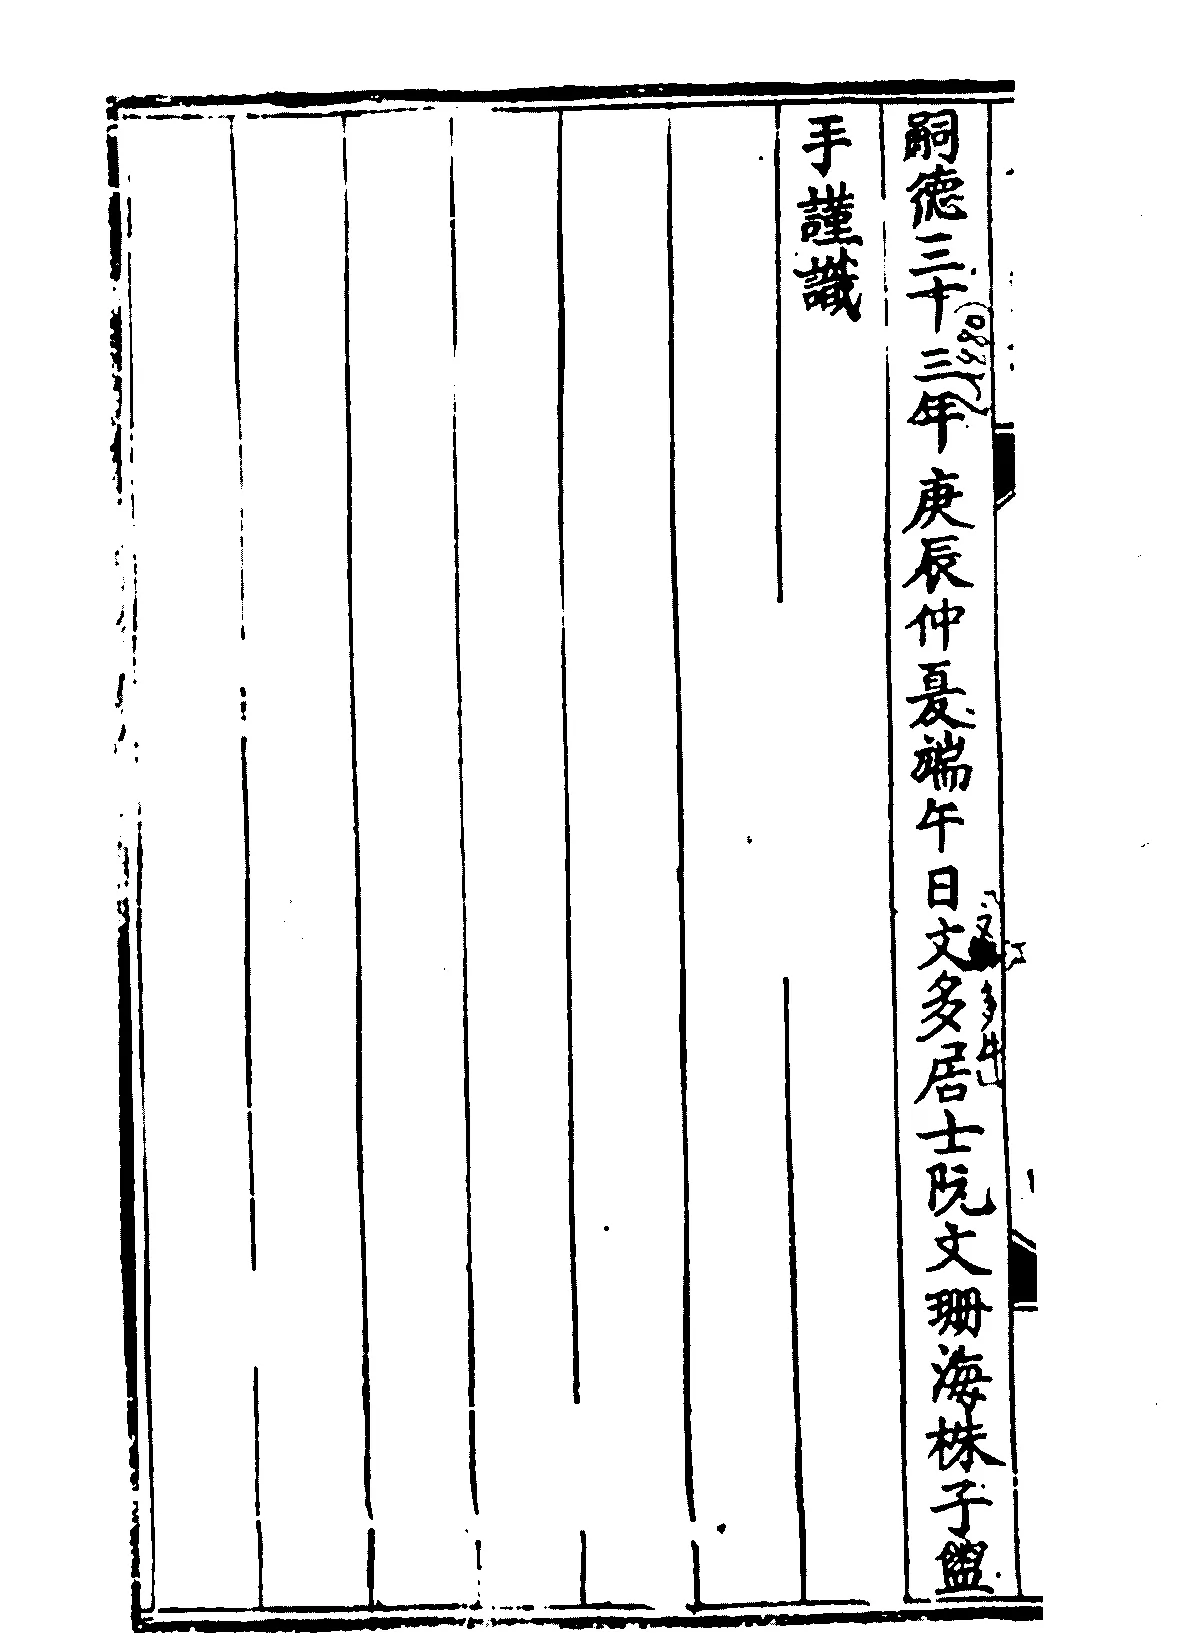 嗣徳三十三年庚辰仲夏端午日文多居士阮文珊海株子盥
手謹識